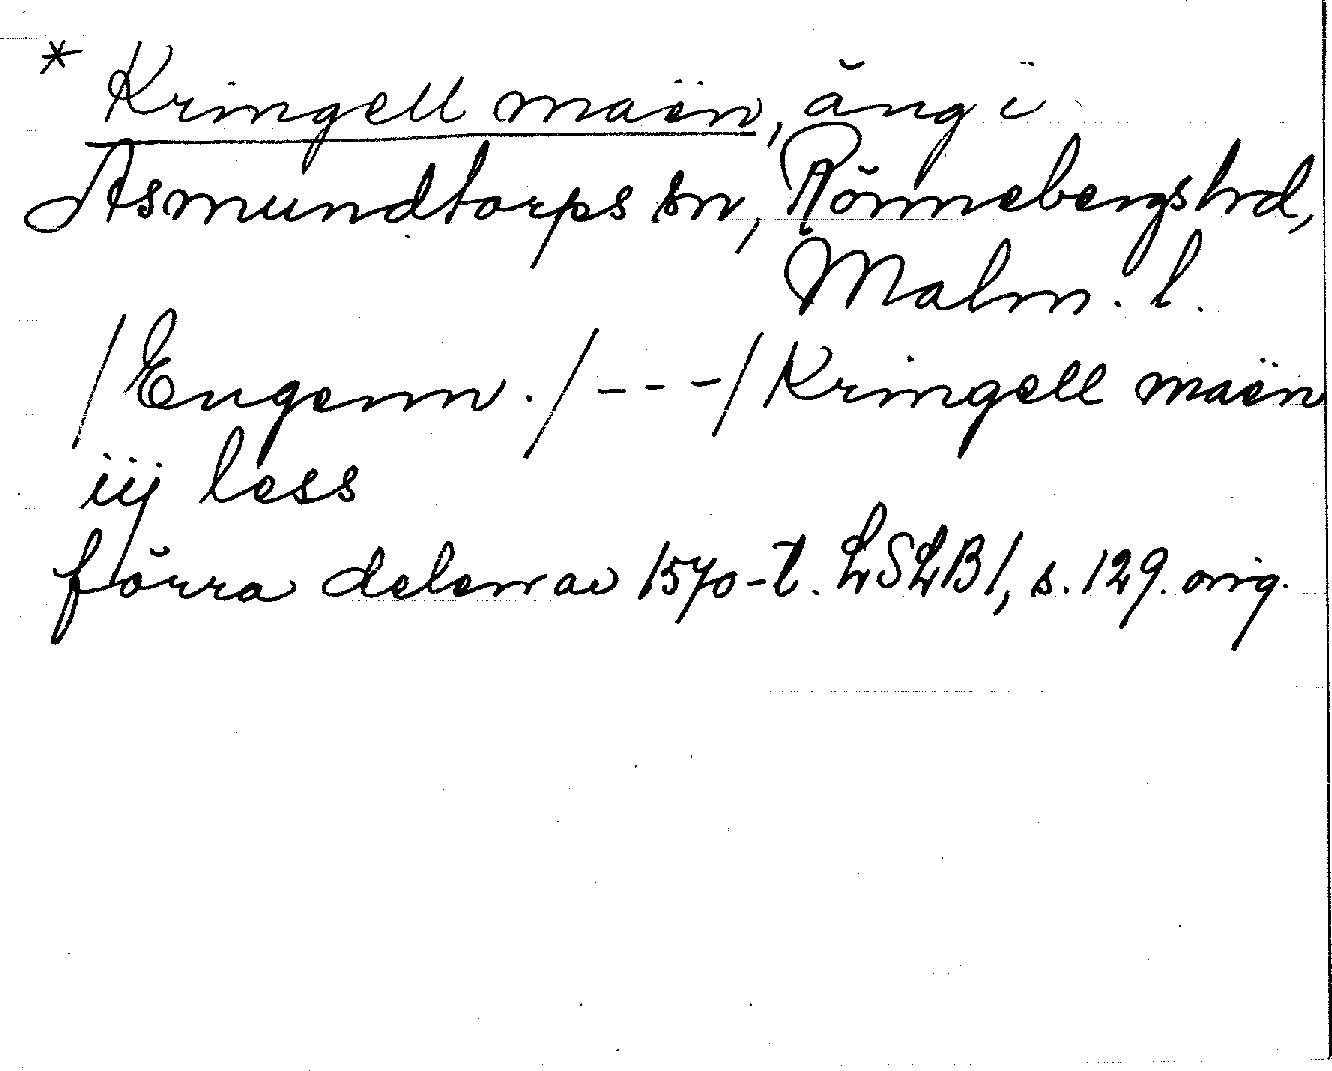 * Kringell maën, äng i
Asmundtorps sn, Rönnebergs hrd,
Malm. l.
/Engenn./---/Kringell maën
iij less
förra delen av 1570-t. LSLB1, s. 129. orig.